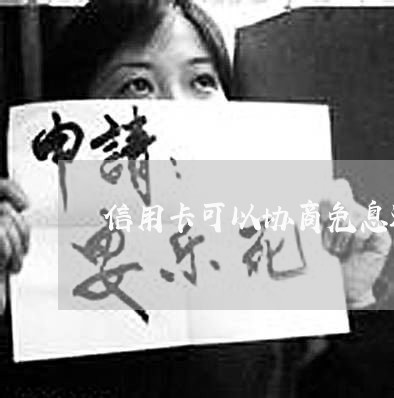 申請：
信用卡可以协商免息
安乐死